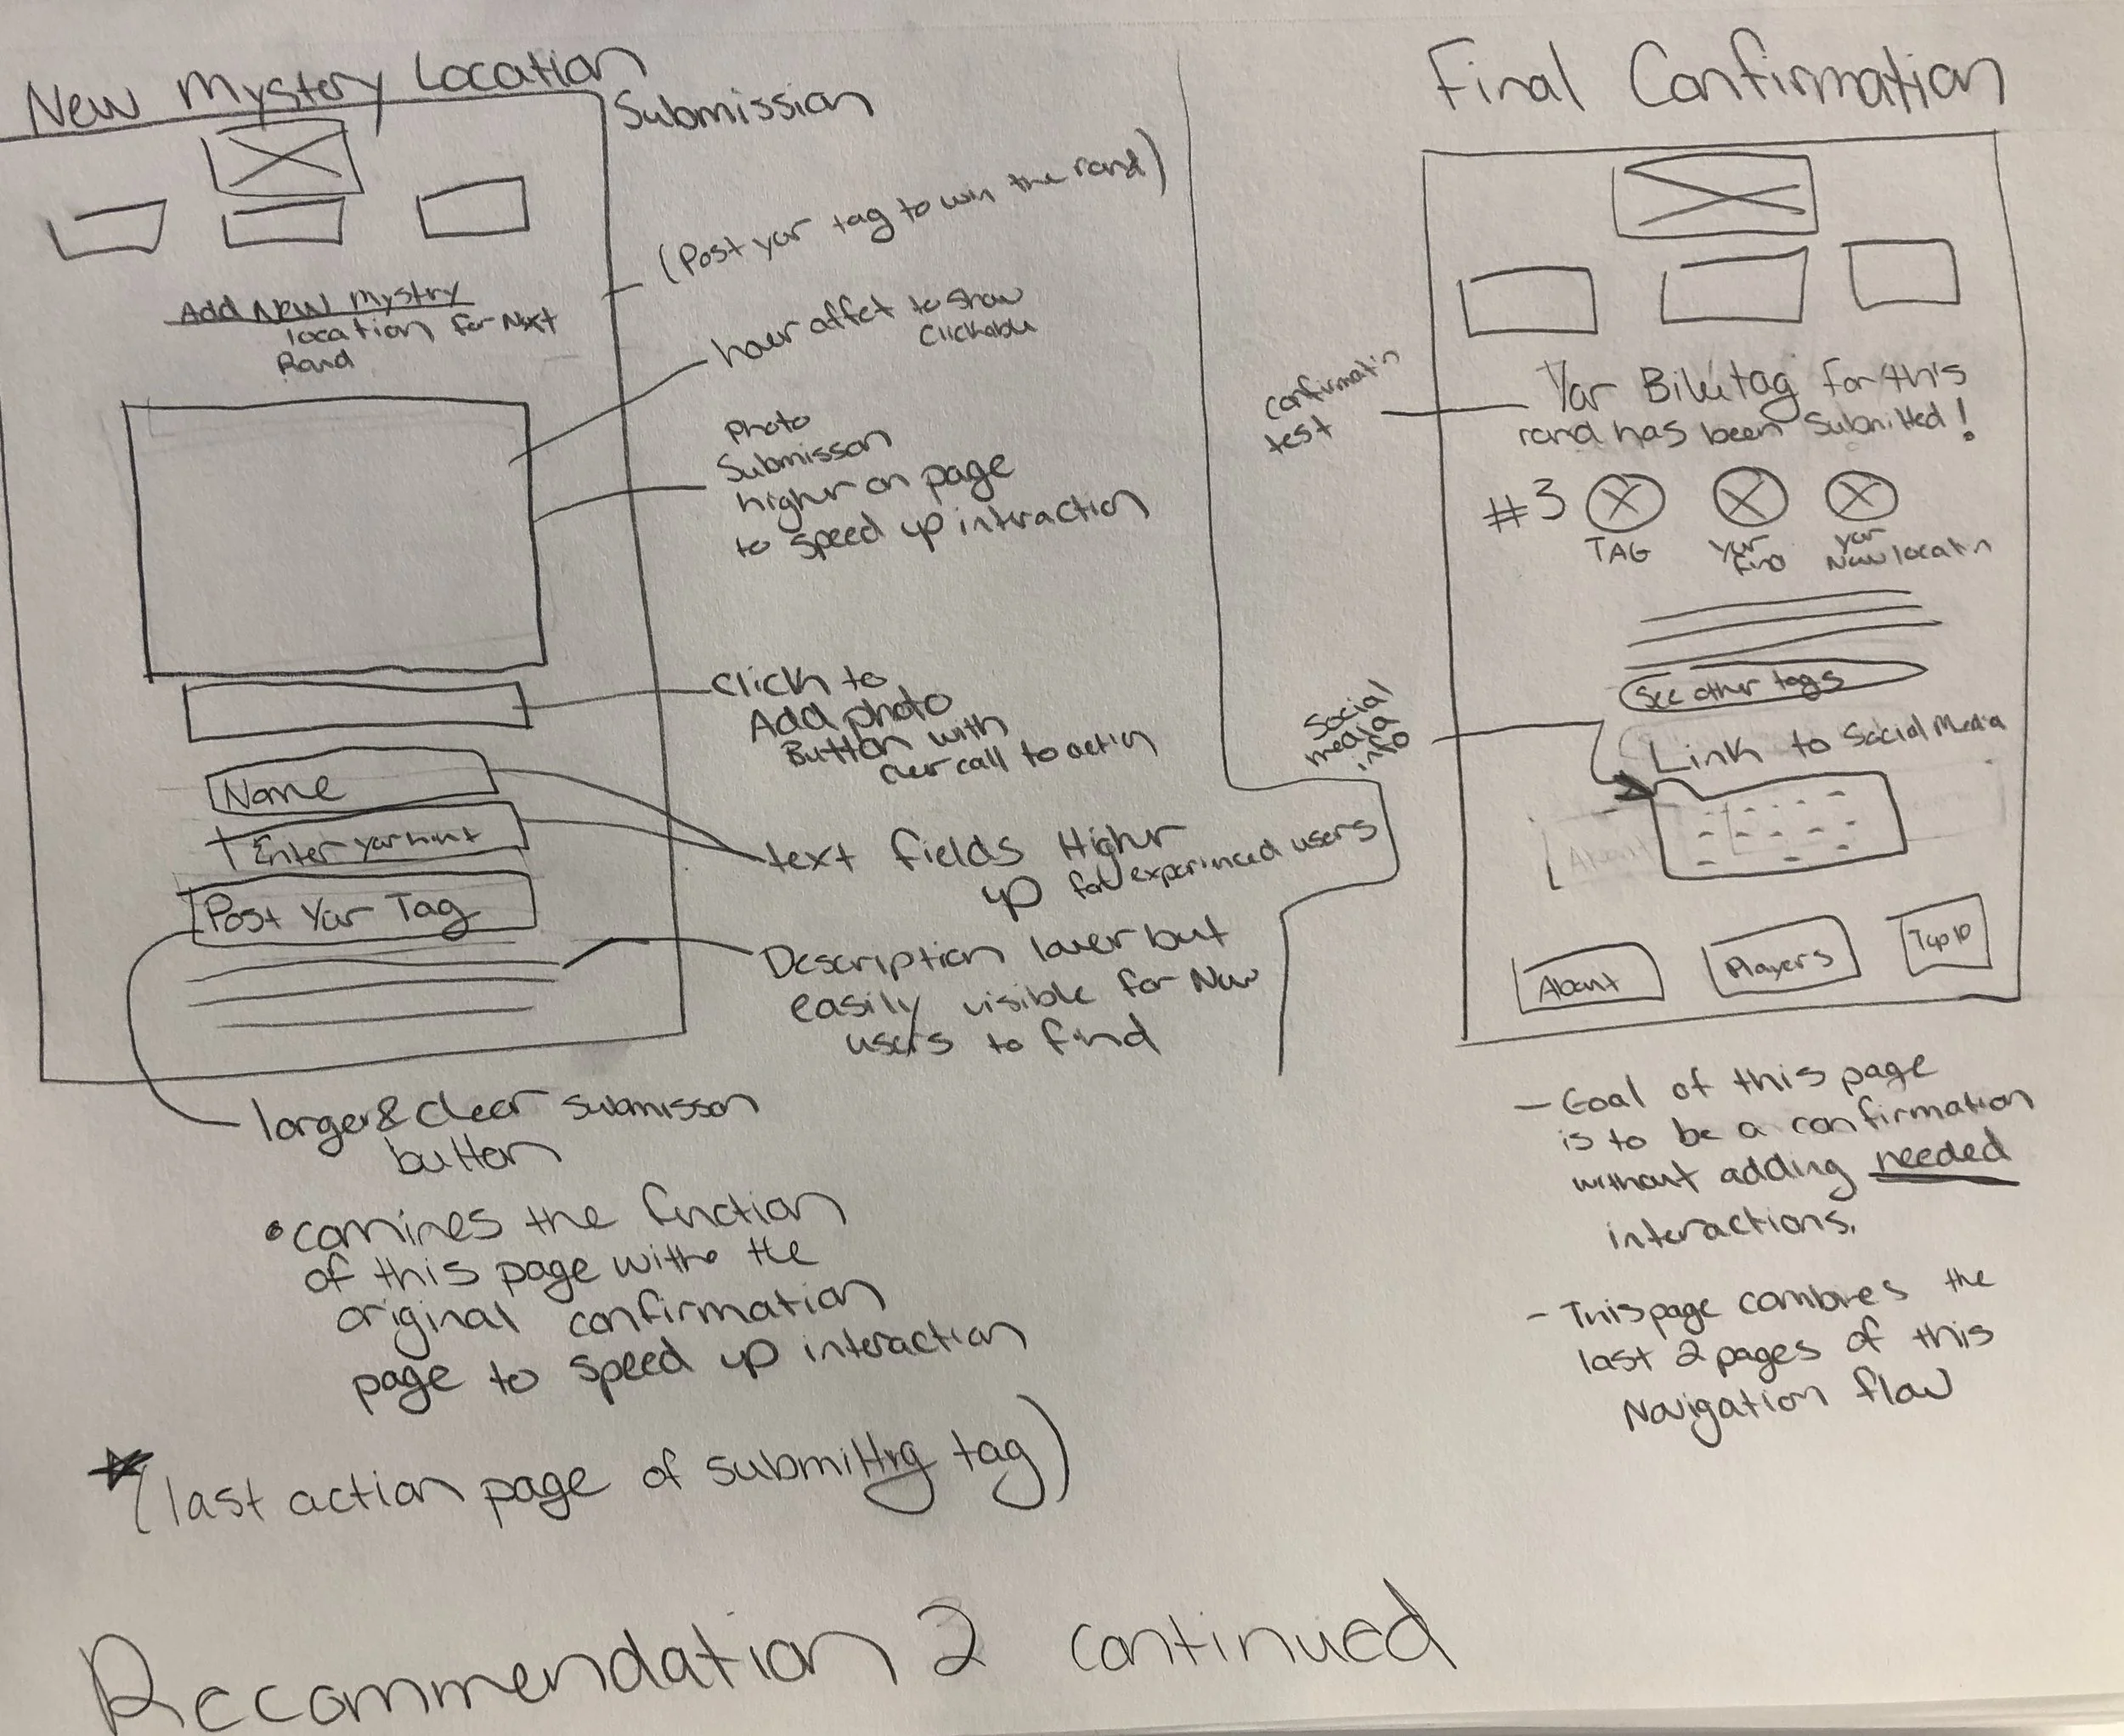 New Mystery Location
Submission
Add New mystry
location for Next
Rand
(Post yar tag to win the rand)
hover affet to show
Clickable
Photo
Submisson
higher on page
to speed up intraction
Click to
Add photo
Button with
clear call to actin
Name
Enter yar hint
Post Yar Tag
text fields Higher
up for experinced users
Description lower but
easily visible for New
users to find
larger & clear submisson
button
• comines the function
of this page with the
original confirmation
page to speed up interaction
(last action page of submitting tag)
Final Confirmation
confirmatin
test
Yar Biketag for this
rand has been submitted!
#3
TAG
yar
find
yar
New locatin
See other tags
Social
media
info
Link to Social Media
About
About
Players
Top 10
- Goal of this page
is to be a confirmation
without adding needed
interactions.
- This page combines the
last 2 pages of this
Navigation flow
Recommendation 2 continued